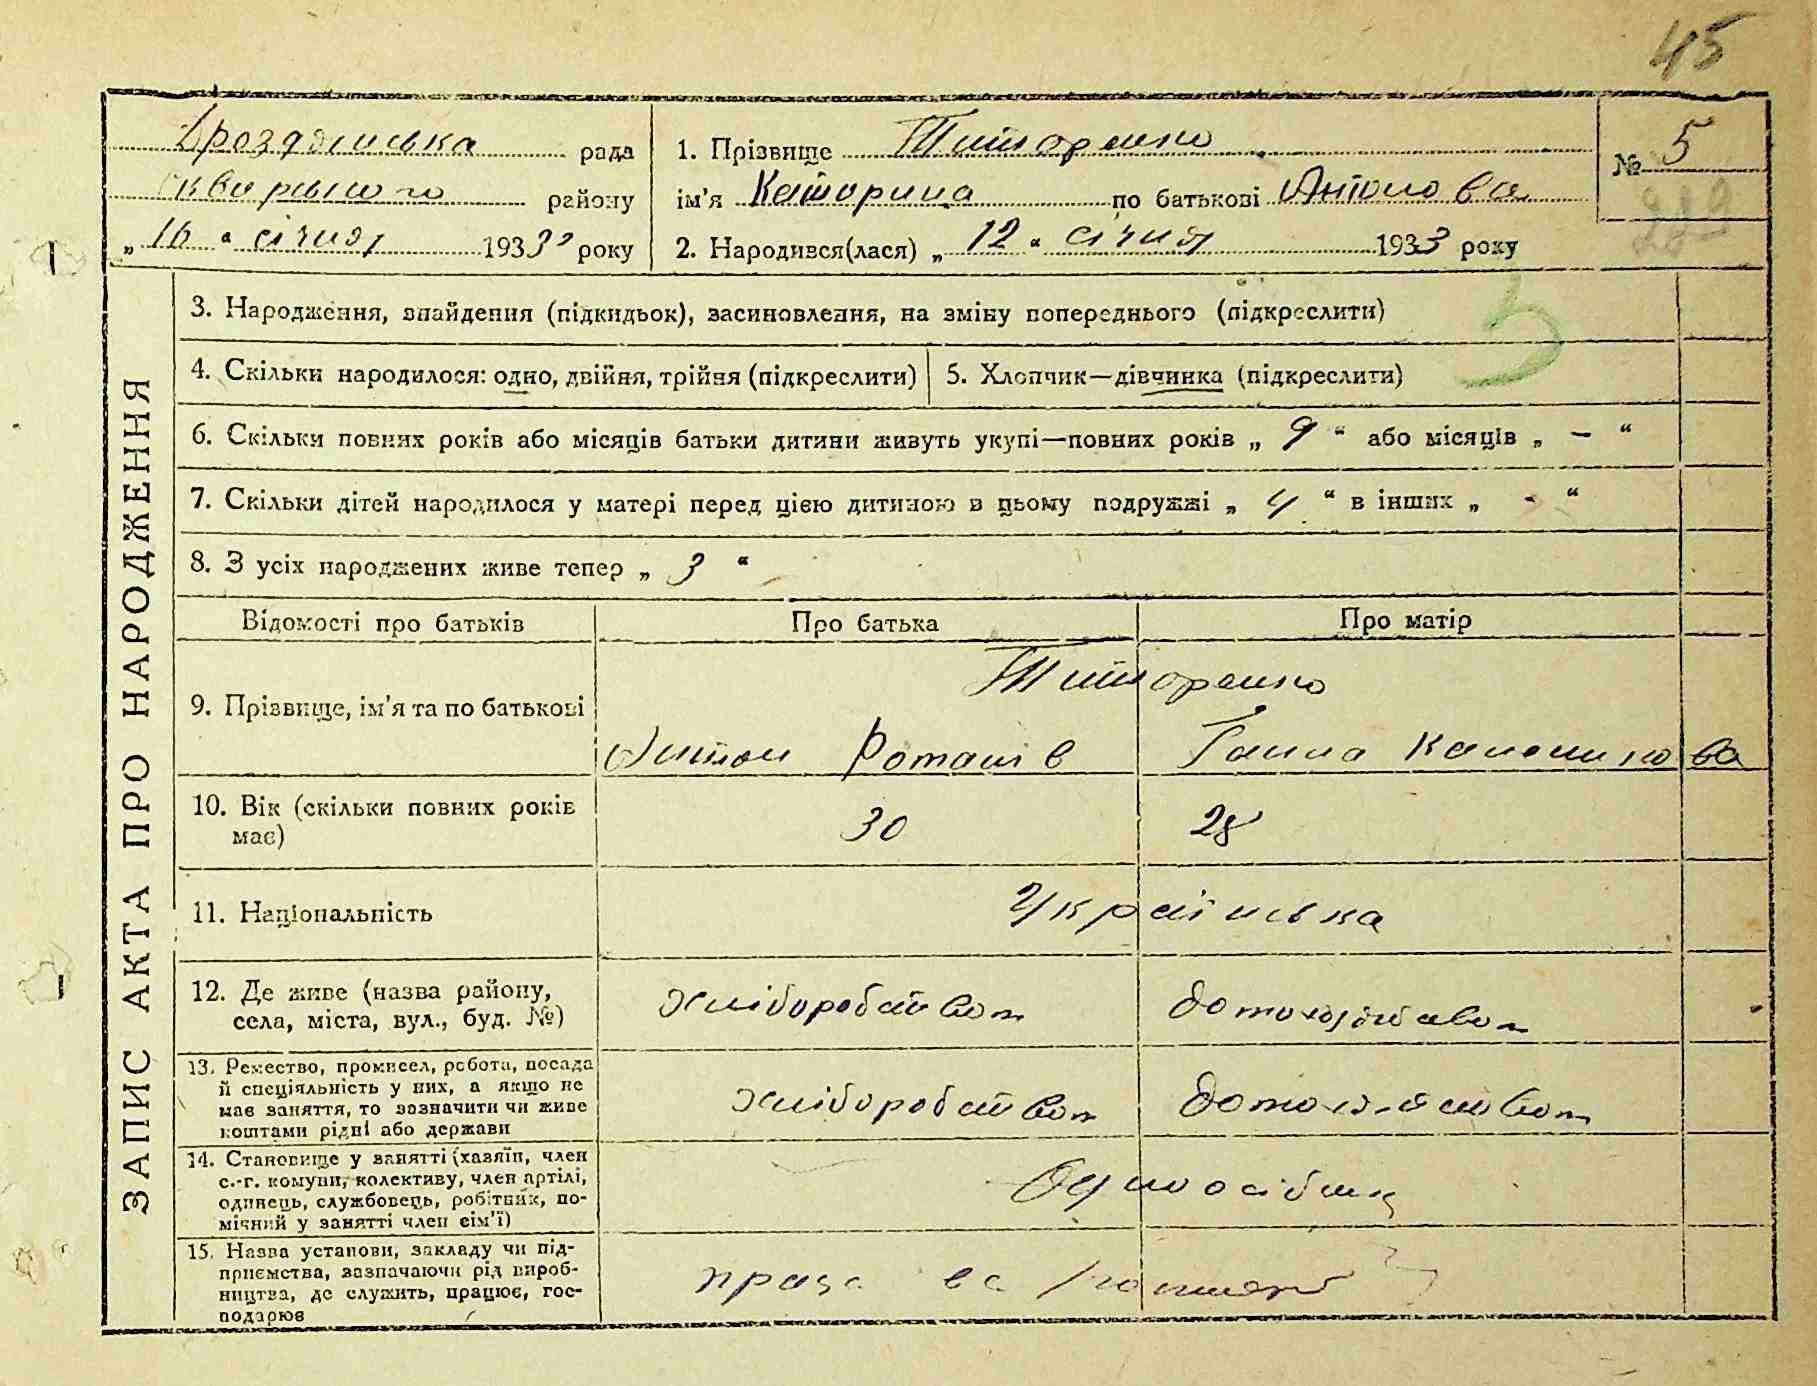 45
Дроздянська рада
Сквирського району
„ 16 “ січня 1933 року
1. Прізвище Титаренко
ім'я Катерина по батькові Антонова
2. Народився(лася) „ 12 “ січня 1933 року
№ 5
289
ЗАПИС АКТА ПРО НАРОДЖЕННЯ
5
3. Народження, знайдення (підкидьок), засиновлення, на зміну попереднього (підкреслити)
4. Скільки народилося: одно, двійня, трійня (підкреслити)
5. Хлопчик—дівчинка (підкреслити)
6. Скільки повних років або місяців батьки дитини живуть укупі—повних років „ 9 “ або місяців „ – “
7. Скільки дітей народилося у матері перед цією дитиною в цьому подружжі „ 4 “ в інших „ - “
8. З усіх народжених живе тепер „ 3 “
Відомості про батьків Про батька Про матір
Титоренко
9. Прізвище, ім'я та по батькові
Антон Романів Ганна
10. Вік (скільки повних років
має)
30 28
11. Національність Українська
12. Де живе (назва району,
села, міста, вул., буд. №)
хліборобством
13. Ремество, промисел, робота, посада
й спеціяльність у них, а якщо не
має заняття, то зазначити чи живе
коштами рідні або держави
хліборобством
14. Становище у занятті (хазяїн, член
с.-г. комуни, колективу, член артілі,
одинець, службовець, робітник, по-
мічний у занятті член сім'ї)
Одноосібник
15. Назва установи, закладу чи під-
приємства, зазначаючи рід вироб-
ництва, де служить, працює, гос-
подарює